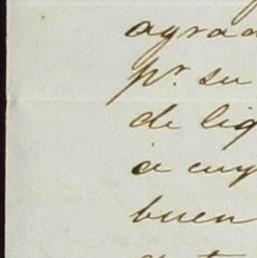 agrad
pr. su
de liq
á cuy
buen